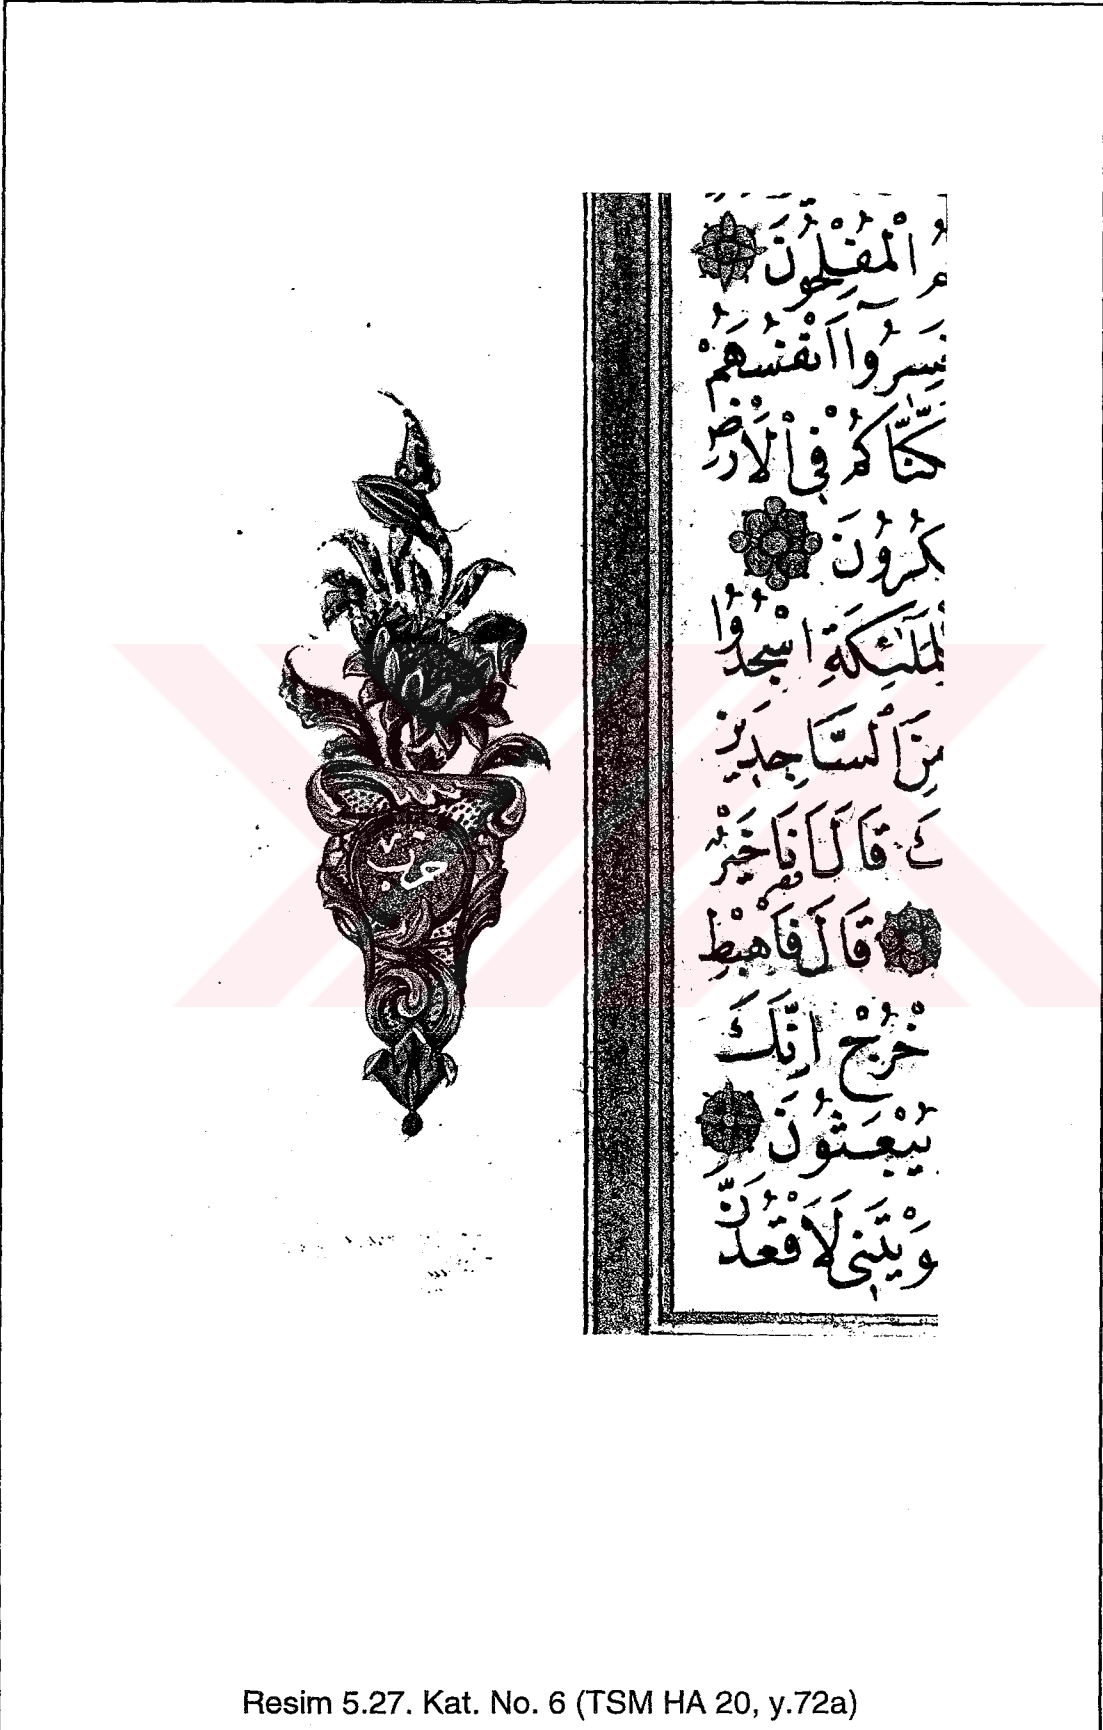 حزب
الْمُفْلِحُونَ
اَنْفُسَهُمْ
كُمْ فِى الْاَرْضِ
اسْجُدُوا
مِنَ السَّاجِدِينَ
كَ قَالَ اَنَا خَيْرٌ
قَالَ فَاهْبِطْ
خْرُجْ اِنَّكَ
يُبْعَثُونَ
وَيْتَنِى لَاَقْعُدَنَّ
Resim 5.27. Kat. No. 6 (TSM HA 20, y.72a)